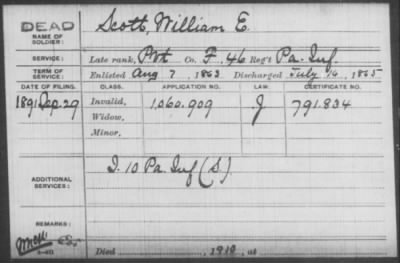 DEAD
NAME OF SOLDIER: Scott, William E.
SERVICE: Late rank, Pvt Co. F, 46 Reg't Pa. Inf.
TERM OF SERVICE: Enlisted Aug 7, 1863 Discharged July 16, 1865
DATE OF FILING. CLASS. APPLICATION NO. LAW. CERTIFICATE NO.
1891 Sep. 29 Invalid, 1,060.909 J 791.834
Widow,
Minor,
ADDITIONAL SERVICES: I. 10 Pa Inf (S.)
REMARKS:
Died 1910, at